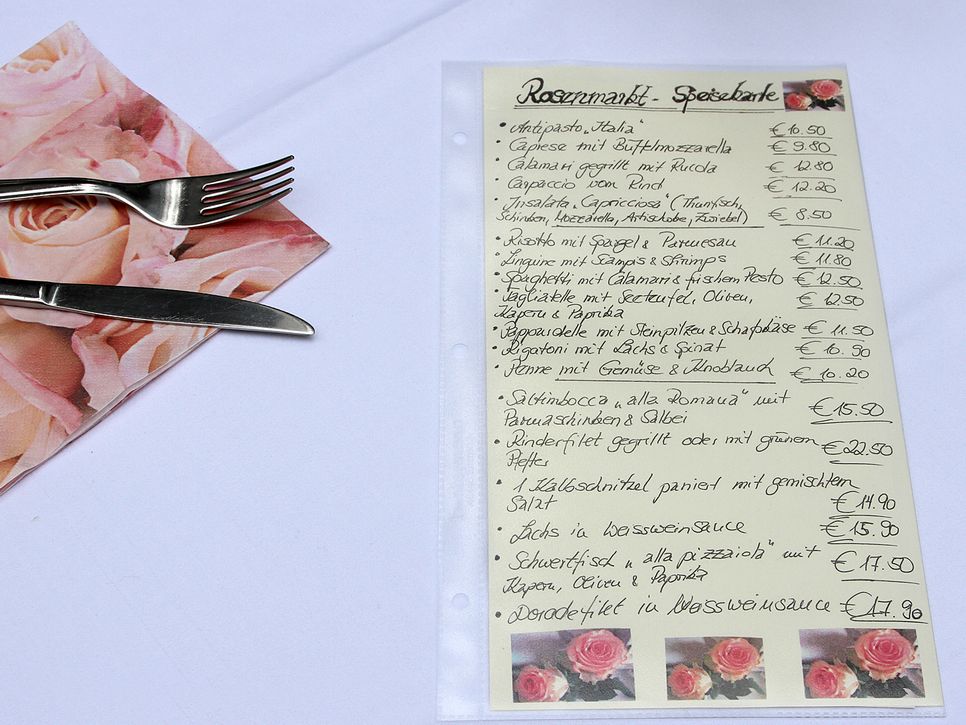 Rosenmarkt - Speisekarte
• Antipasto „Italia" € 10.50
• Capiese mit Büffelmozzarella € 9.80
• Calamari gegrillt mit Rucola € 12.80
• Carpaccio vom Rind € 12.20
• Insalata „Capricciosa" (Thunfisch,
Schinken, Mozzarella, Artischoke, Zwiebel) € 8.50
• Risotto mit Spargel & Parmesan € 11.20
• Linguine mit Scampis & Shrimps € 11.80
• Spaghetti mit Calamari & frischem Pesto € 12.50
• Tagliatelle mit Seeteufel, Oliven, € 12.50
Kapern & Paprika
• Pappardelle mit Steinpilzen & Schafskäse € 11.50
• Rigatoni mit Lachs & Spinat € 10.90
• Penne mit Gemüse & Knoblauch € 10.20
• Saltimbocca „alla Romana" mit € 15.50
Parmaschinken & Salbei
• Rinderfilet gegrillt oder mit grünem € 22.50
Pfeffer
• 1 Kalbschnitzel paniert mit gemischtem
Salat € 14.90
• Lachs in Weissweinsauce € 15.90
• Schwertfisch „alla pizzaiola" mit € 17.50
Kapern, Oliven & Paprika
• Doradefilet in Weissweinsauce € 17.90